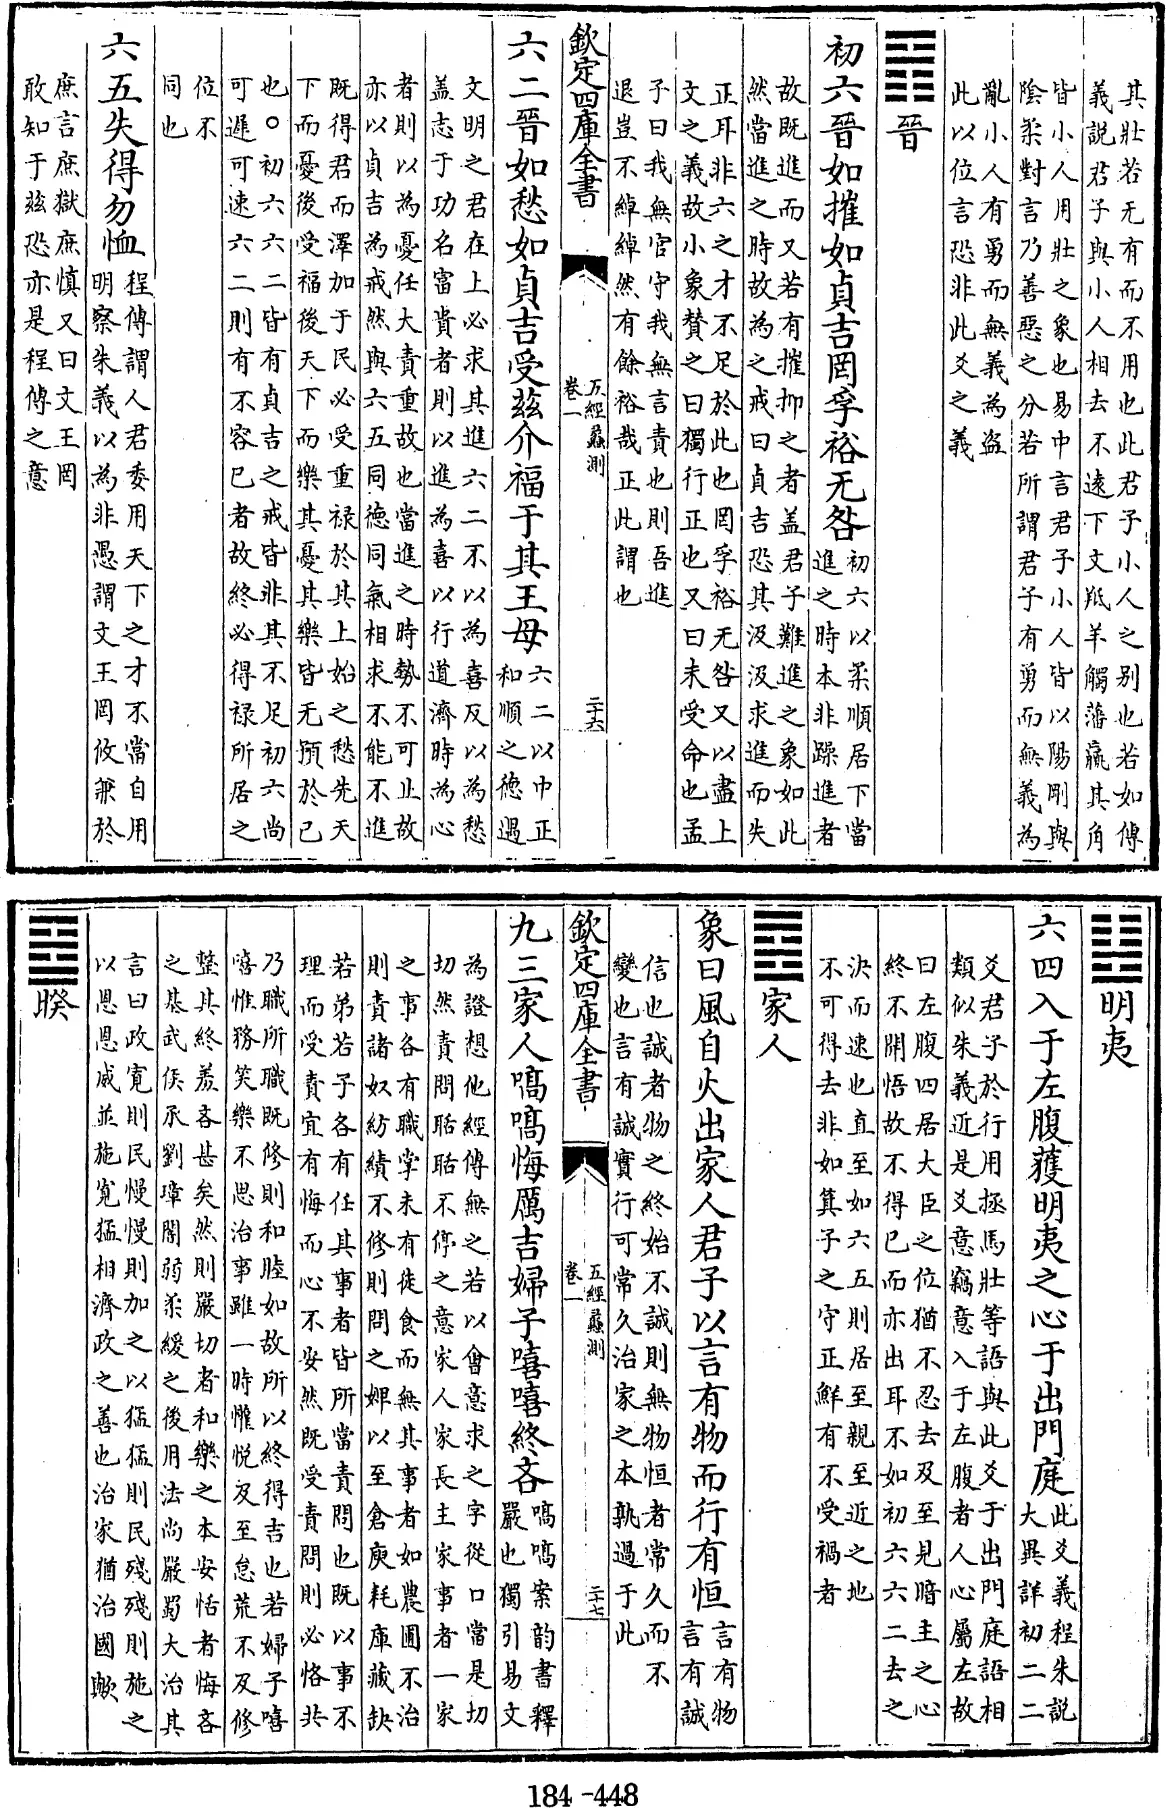 其壯若无有而不用也此君子小人之别也若如傳
義説君子與小人相去不遠下文羝羊觸藩羸其角
皆小人用壯之象也易中言君子小人皆以陽剛與
陰柔對言乃善惡之分若所謂君子有勇而無義為
亂小人有勇而無義為盜
此以位言恐非此爻之義
䷢晉
初六晉如摧如貞吉罔孚裕无咎初六以柔順居下當
進之時本非躁進者
故既進而又若有摧抑之者蓋君子難進之象如此
然當進之時故為之戒曰貞吉恐其汲汲求進而失
正耳非六之才不足於此也罔孚裕无咎又以盡上
文之義故小象贊之曰獨行正也又曰未受命也孟
子曰我無官守我無言責也則吾進
退豈不綽綽然有餘裕哉正此謂也
欽定四庫全書
五經蠡測
卷一
二十六
六二晉如愁如貞吉受兹介福于其王母六二以中正
和順之德遇
文明之君在上必求其進六二不以為喜反以為愁
蓋志于功名富貴者則以進為喜以行道濟時為心
者則以為憂任大責重故也當進之時勢不可止故
亦以貞吉為戒然與六五同德同氣相求不能不進
既得君而澤加于民必受重禄於其上始之愁先天
下而憂後受福後天下而樂其憂其樂皆无預於己
也○初六六二皆有貞吉之戒皆非其不足初六尚
可遲可速六二則有不容已者故終必得禄所居之
位不
同也
六五失得勿恤程傳謂人君委用天下之才不當自用
明察朱義以為非愚謂文王罔攸兼於
庶言庶獄庶慎又曰文王罔
敢知于兹恐亦是程傳之意
䷣明夷
六四入于左腹獲明夷之心于出門庭此爻義程朱説
大異詳初二二
爻君子於行用拯馬壯等語與此爻于出門庭語相
類似朱義近是爻意竊意入于左腹者人心屬左故
曰左腹四居大臣之位猶不忍去及至見暗主之心
終不開悟故不得已而亦出耳不如初六六二去之
決而速也直至如六五則居至親至近之地
不可得去非如箕子之守正鮮有不受禍者
䷤家人
象曰風自火出家人君子以言有物而行有恒言有物
言有誠
信也誠者物之終始不誠則無物恒者常久而不
變也言有誠實行可常久治家之本孰過于此
欽定四庫全書
五經蠡測
卷一
二十七
九三家人嗃嗃悔厲吉婦子嘻嘻終吝嗃嗃案韵書釋
嚴也獨引易文
為證想他經傳無之若以會意求之字從口當是切
切然責問聒聒不停之意家人家長主家事者一家
之事各有職掌未有徒食而無其事者如農圃不治
則責諸奴紡績不修則問之婢以至倉庾耗庫藏缺
若弟若子各有任其事者皆所當責問也既以事不
理而受責宜有悔而心不安然既受責問則必恪共
乃職所職既修則和睦如故所以終得吉也若婦子嘻
嘻惟務笑樂不思治事雖一時懽悦及至怠荒不及修
整其終羞吝甚矣然則嚴切者和樂之本安恬者悔吝
之基武侯承劉璋闇弱柔緩之後用法尚嚴蜀大治其
言曰政寛則民慢慢則加之以猛猛則民殘殘則施之
以恩恩威並施寛猛相濟政之善也治家猶治國歟
䷥睽
184-448